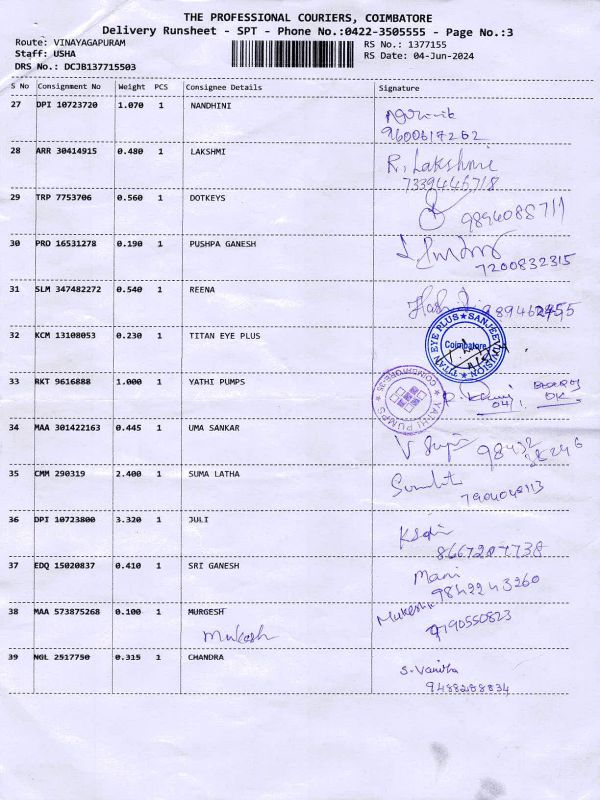 THE PROFESSIONAL COURIERS, COIMBATORE
Delivery Runsheet - SPT - Phone No.:0422-3505555 - Page No.:3
Route: VINAYAGAPURAM
Staff: USHA
DRS No.: DCJB137715503
RS No.: 1377155
RS Date: 04-Jun-2024
S No Consignment No Weight PCS Consignee Details Signature
27 DPI 10723720 1.070 1 NANDHINI
9600617262
28 ARR 30414915 0.480 1 LAKSHMI R. Lakshmi
7339446718
29 TRP 7753706 0.560 1 DOTKEYS
9894088711
30 PRO 16531278 0.190 1 PUSHPA GANESH
7200832315
31 SLM 347482272 0.540 1 REENA
32 KCM 13108053 0.230 1 TITAN EYE PLUS
TITAN EYE PLUS ★ SANJEEV VISION ★
Coimbatore
33 RKT 9616888 1.000 1 YATHI PUMPS
YATHI PUMPS COIMBATORE-35
OK
34 MAA 301422163 0.445 1 UMA SANKAR
35 CMM 290319 2.400 1 SUMA LATHA
36 DPI 10723800 3.320 1 JULI
8667207738
37 EDQ 15020837 0.410 1 SRI GANESH
Mani
9842243260
38 MAA 573875268 0.100 1 MURGESH
Mukesh
Mukesh
9190550823
39 NGL 2517750 0.315 1 CHANDRA
S. Vanitha
9488288834